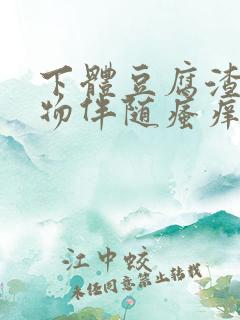 下體豆腐渣
物伴随瘙痒
江中蛟
未经同意禁止转载